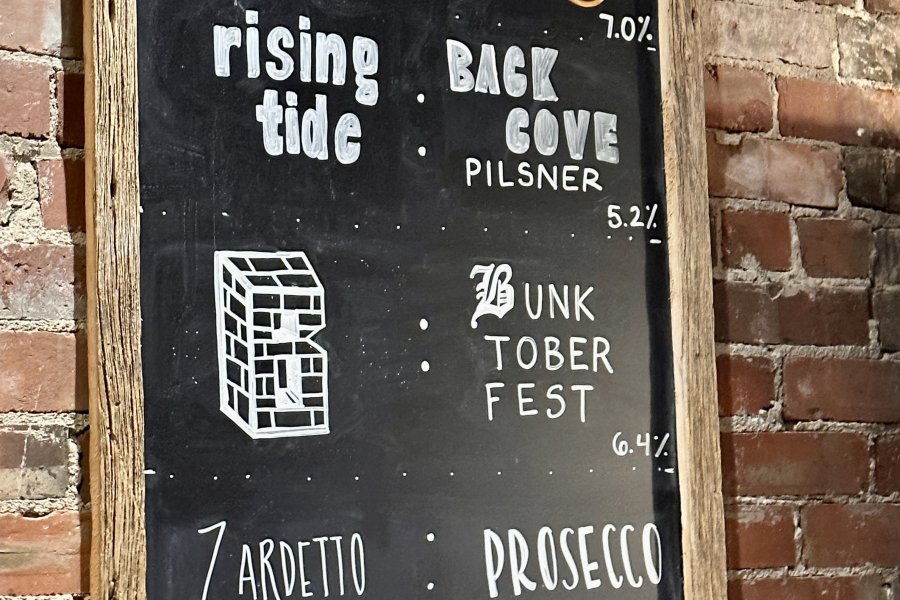 7.0%
rising
tide
:
BACK
COVE
PILSNER
5.2%
:
BUNK
TOBER
FEST
6.4%
ZARDETTO : PROSECCO